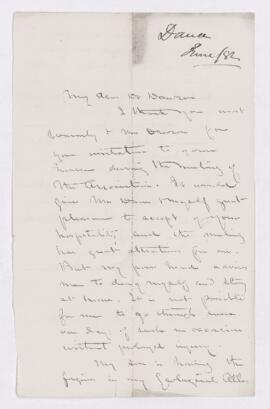 Dana
June /82
My dear Dr Dawson
I thank you most
warmly & Mrs Dawson for
your invitation to your
house during the meeting of
the Association. It would
give Mrs Dana & myself great
pleasure to accept of your
hospitality, and the meeting
has great attractions for me.
But my poor head warns
me to deny myself and stay
at home. It is not possible
for me to go through even
one day of such an occasion
without prolonged injury.
My son is having the
figures in my Geological